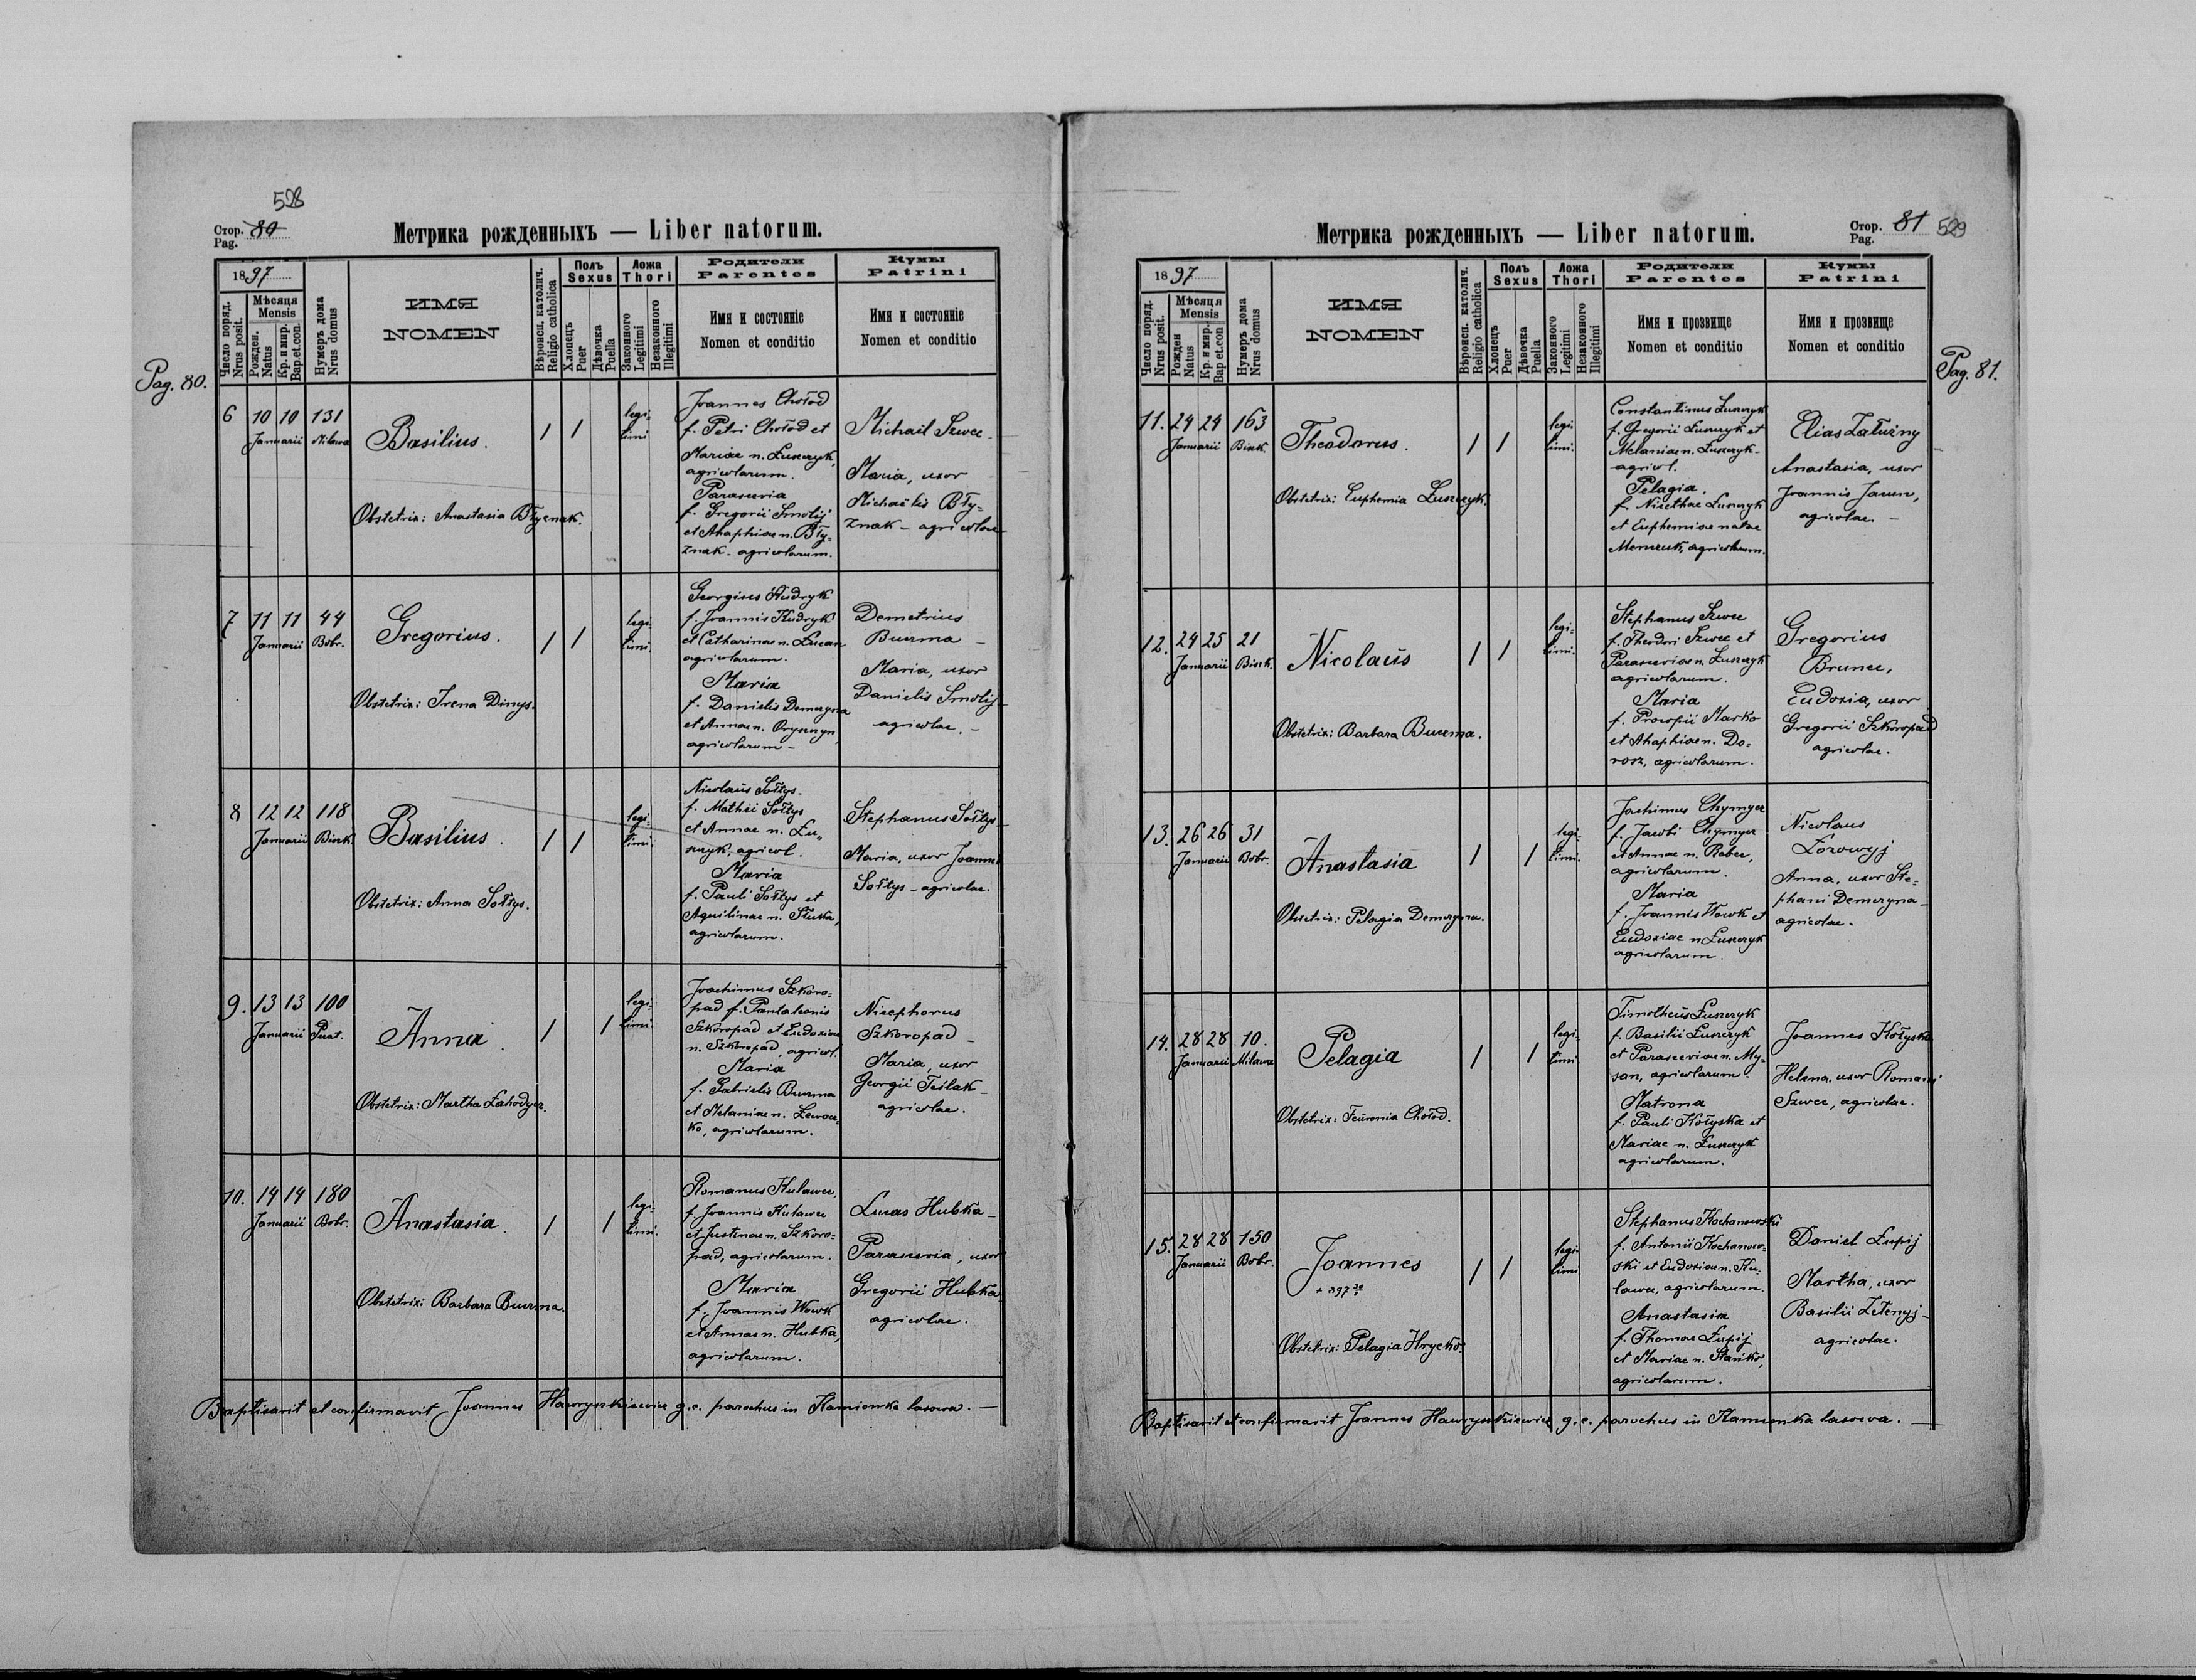 528
Стор. 80
Pag.
Метрика рожденныхъ — Liber natorum.
Pag. 80.
1897
Число поряд.
Nrus posit.
Мѣсяця
Mensis
Рожден.
Natus
Кр. и мир.
Bap.et.con.
Нумеръ дома
Nrus domus
ИМЯ
NOMEN
Вѣроисп. католич.
Religio catholica
Полъ
Sexus
Хлопецъ
Puer
Дѣвочка
Puella
Ложа
Thori
Законного
Legitimi
Незаконного
Illegitimi
Родители
Parentes
Имя и состояніе
Nomen et conditio
Кумы
Patrini
Имя и состояніе
Nomen et conditio
6 10 10 131
Januarii Milawa
Basilius.
Obstetrix: Anastasia Błyznak.
1 1
legi-
timi
Joannes Chołod
f. Petri Chołod et
Mariae n. Łuszczyk,
agricolarum.
Parascevia
f. Gregorii Smolij
et Ahaphiae n. Bły=
znak - agricolarum.
Michail Szwec -
Maria, uxor
Michaëlis Bły=
znak - agricolae
7 11 11 44
Januarii Bobr.
Gregorius.
Obstetrix: Irena Dinys.
1 1
legi-
timi.
Georgius Kudryk
f. Joannis Kudryk
et Catharinae n.
agricolarum.
Maria
f. Danielis Demczyna
et Annae n. Oryszczyn
agricolarum -
Demetrius
Buczma -
Maria, uxor
Danielis Smolij -
agricolae. -
8 12 12 118
Januarii Bink.
Basilius.
Obstetrix: Anna Sołtys.
1 1
legi-
timi.
Nicolaüs Sołtys.
f. Mathii Sołtys
et Annae n. Łu=
szczyk, agricol.
Maria
f. Pauli Sołtys et
Aquilinae n. Słuka,
agricolarum.
Stephanus Sołtys -
Maria, uxor Joannis
Sołtys - agricolae.
9. 13 13 100
Januarii Pust.
Anna.
Obstetrix: Martha Zahodycz.
1 1
legi-
timi.
Joachimus Szkoro=
pad f. Pantaleonis
Szkoropad et Eudoxiae
n. Szkoropad, agricol.
Maria
f. Gabrielis Buczma
et Melaniae n.
ko, agricolarum.
Nicephorus
Szkoropad -
Maria, uxor
Georgii Teślak -
agricolae.
10. 14 14 180
Januarii Bobr.
Anastasia.
Obstetrix: Barbara Buczma.
1 1
legi-
timi.
Romanus Kulawec,
f. Joannis Kulawec
et Justinae n. Szkoro=
pad, agricolarum.
Maria
f. Joannis Wowk
et Annae n. Hubka,
agricolarum.
Lucas Hubka -
Parascevia, uxor
Gregorii Hubka
agricolae.
Baptisavit et confirmavit Joannes Hawryszkiewicz g.c. parochus in Kamionka lasowa. -
Метрика рожденныхъ — Liber natorum.
Стор. 81 529
Pag.
Pag. 81.
1897
Число поряд.
Nrus posit.
Мѣсяця
Mensis
Рожден
Natus
Кр. и мир.
Bap et.con
Нумеръ дома
Nrus domus
ИМЯ
NOMEN
Вѣроисп. католич.
Religio catholica
Полъ
Sexus
Хлопецъ
Puer
Дѣвочка
Puella
Ложа
Thori
Законного
Legitimi
Незаконного
Illegitimi
Родители
Parentes
Имя и прозвище
Nomen et conditio
Кумы
Patrini
Имя и прозвище
Nomen et conditio
11. 24 24 163
Januarii Bink.
Theodorus.
Obstetrix: Euphemia Łuszczyk.
1 1
legi-
timi.
Constantinus Łuszczyk
f. Gregorii Łuszczyk et
Melaniae n. Łuszczyk -
agricol.
Pelagia.
f. Nicethae Łuszczyk
et Euphemiae natae
agricolarum.
Elias Załużny
Anastasia, uxor
Joannis
agricolae. -
12. 24 25 21
Januarii Bink.
Nicolaüs
Obstetrix: Barbara Buczma.
1 1
legi-
timi.
Stephanus Szwec
f. Theodori Szwec et
Parasceviae n. Łuszczyk
agricolarum.
Maria
f. Procopii Marko
et Ahaphiae n. Do=
rosz, agricolarum.
Gregorius
Brunec,
Eudoxia, uxor
Gregorii Szkoropad
agricolae.
13. 26 26 31
Januarii Bobr.
Anastasia
Obstetrix: Pelagia Demczyna.
1 1
legi-
timi.
Jachimus Chymycz
f. Jacobi Chymycz
et Annae n. Rebec,
agricolarum.
Maria
f. Joannis Wowk et
Eudoxiae n Łuszczyk
agricolarum.
Nicolaus
Lozowyj
Anna, uxor Ste=
phani Demczyna -
agricolae.
14. 28 28 10.
Januarii Milawa
Pelagia
Obstetrix: Feuronia Chołod.
1 1
legi-
timi.
Timotheüs Łuszczyk
f. Basilii Łuszczyk
et Parasceviae n. My=
san, agricolarum.
Matrona
f. Pauli Kołyska et
Mariae n. Łuszczyk
agricolarum.
Joannes Kołyska
Helena, uxor Romani
Szwec, agricolae.
15. 28 28 150
Januarii Bobr.
Joannes
Obstetrix: Pelagia Hrycko.
1 1
legi-
timi
Stephanus Kochanowski
f. Antonii Kochanow=
ski et Eudoxiae n. Ku=
lawec, agricolarum.
Anastasia
f. Thomae Łupij
et Mariae n. Stańko,
agricolarum.
Daniel Łupij
Martha, uxor
Basilii Zełenyj -
agricolae.
Baptisavit et confirmavit Joannes Hawryszkiewicz g.c. parochus in Kamionka lasowa. -